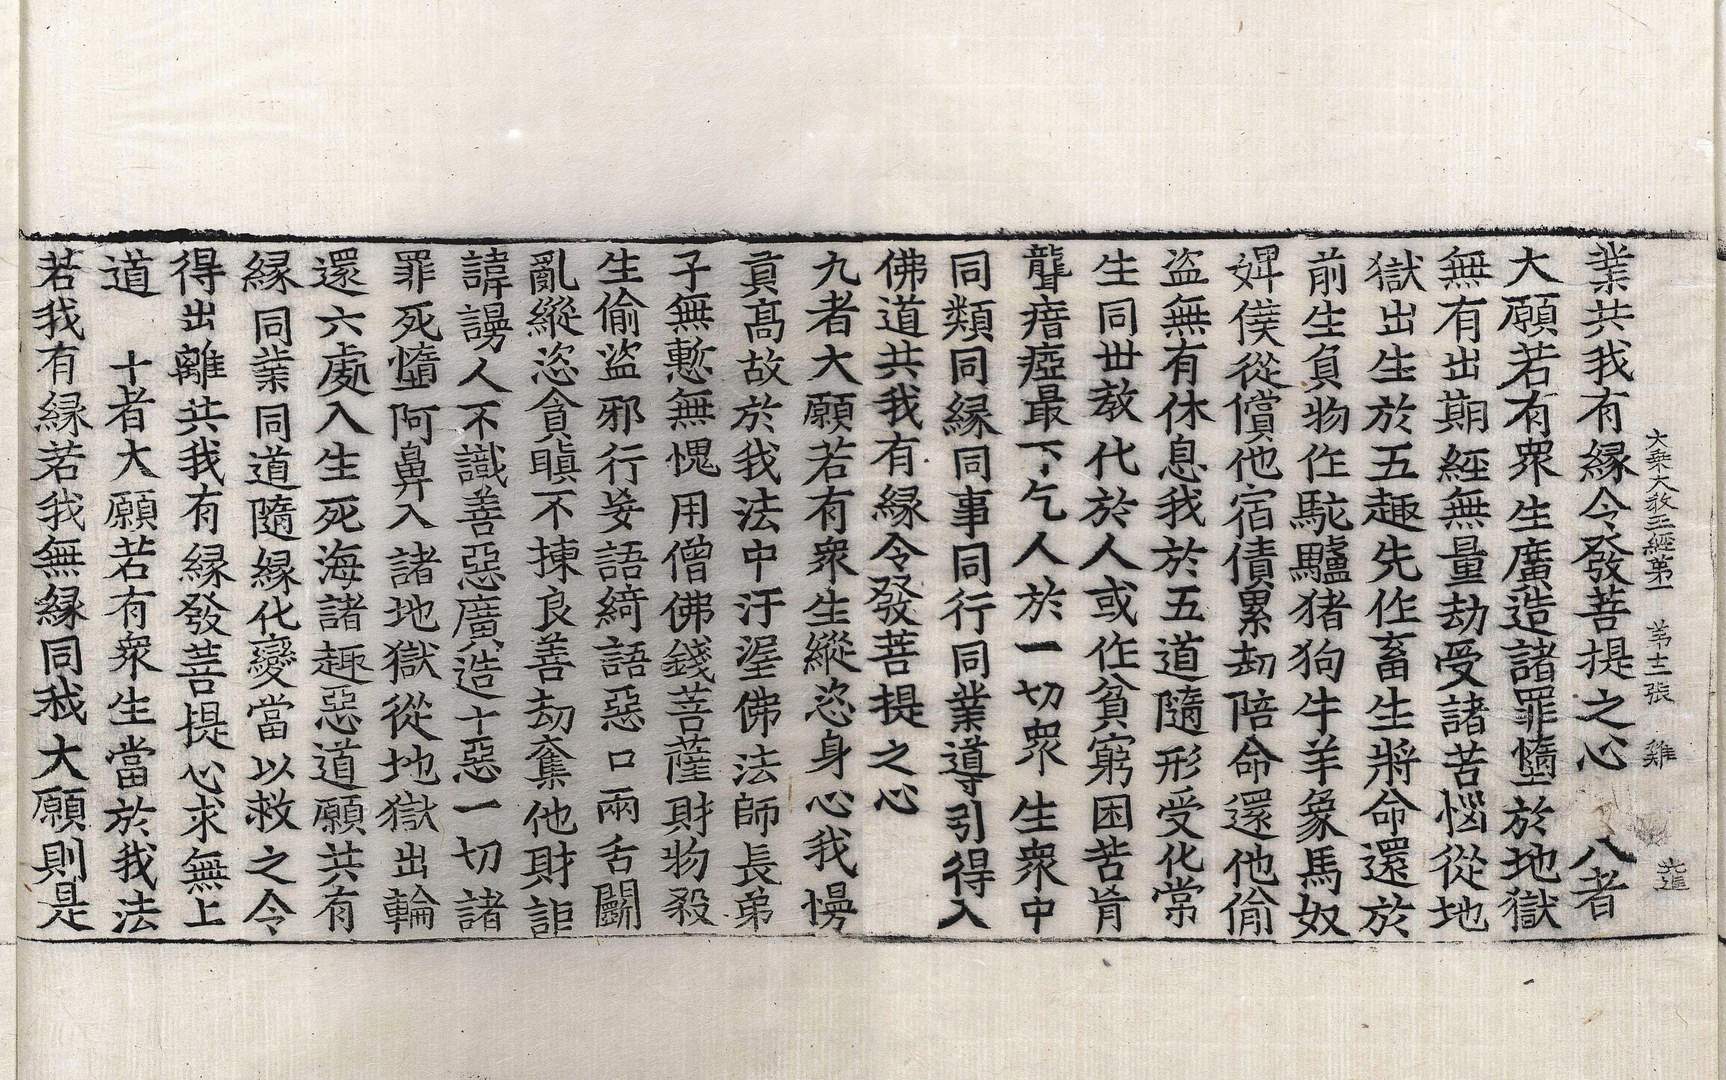 大乗大教王經第一　第十二張　雞
業共我有縁令發菩提之心　八者
大願若有衆生廣造諸罪墮於地獄
無有出期經無量劫受諸苦惱從地
獄出生於五趣先作畜生將命還於
前生負物作駝驢猪狗牛羊象馬奴
婢僕從償他宿債累劫陪命還他偷
盗無有休息我於五道隨形受化常
生同丗教代於人或作貧窮困苦肓
聾瘖瘂最下乞人於一切衆生衆中
同類同縁同事同行同業導引得入
佛道共我有縁令發菩提之心
九者大願若有衆生縱恣身心我慢
貢髙故於我法中汙渥佛法師長弟
子無慙無愧用僧佛錢菩薩財物殺
生偷盗邪行妄語綺語惡口兩舌鬭
亂縱恣貪瞋不揀良善劫奪他財詎
諱謾人不識善惡廣造十惡一切諸
罪死墮阿鼻入諸地獄從地獄出輪
還六處入生死海諸趣惡道願共有
縁同業同道隨縁化變當以救之令
得出離共我有縁發菩提心求無上
道　十者大願若有衆生當於我法
若我有縁若我無縁同我大願則是